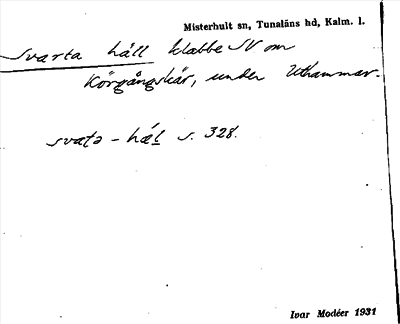 Misterhult sn, Tunaläns hd, Kalm. l.
Svarta häll klabbe SV om
Körgångskär, under Uthammar.
svaṭə - hæḷ s. 328.
Ivar Modéer 1931